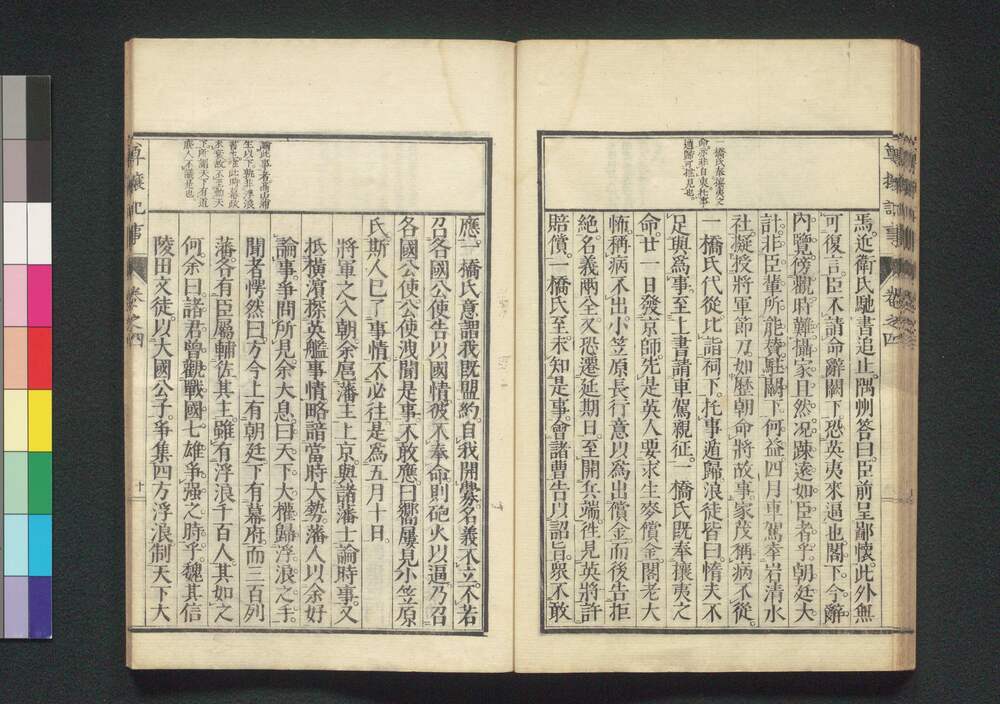 一橋氏奉攘夷之
命亦非自東任事
遁歸可推見也
焉近衛氏馳書追止隅州答曰臣前呈鄙懷此外無
可復言臣不請命辭闕下恐英夷來逼也閣下今辭
內覽傍觀時難攝家且然況疎遠如臣者乎朝廷大
計非臣輩所能贊駐闕下何益四月車駕幸岩清水
社擬授將軍節刀如歷朝命將故事家茂稱病不從
一橋氏代從比詣祠下托事遁歸浪徒皆曰惰夫不
足與爲事至上書請車駕親征一橋氏既奉攘夷之
命廿一日發京師先是英人要求生麥償金閣老大
怖稱病不出小笠原長行意以爲出償金而後告拒
絶名義兩全又恐遷延期日至開兵端徃見英將許
賠償一橋氏至未知是事會諸曹告以詔旨眾不敢
尊攘記事
卷之四
應一橋氏意謂我既盟約自我開釁名義不立不若
召各國公使告以國情彼不奉命則砲火以逼乃召
各國公使公使洩聞是事不敢應曰嚮屢見小笠原
氏斯人已了事情不必往是爲五月十日
將軍之入朝余扈藩主上京與諸藩士論時事又
抵橫濱探英艦事情略諳當時大勢藩人以余好
論事爭問所見余大息曰天下大權歸浮浪之手
聞者愕然曰方今上有朝廷下有幕府而三百列
藩各有臣屬輔佐其主雖有浮浪千百人其如之
何余曰諸君曾觀戰國七雄爭强之時乎魏其信
陵田文徒以大國公子爭集四方浮浪制天下大
尊攘紀事
卷之四
十